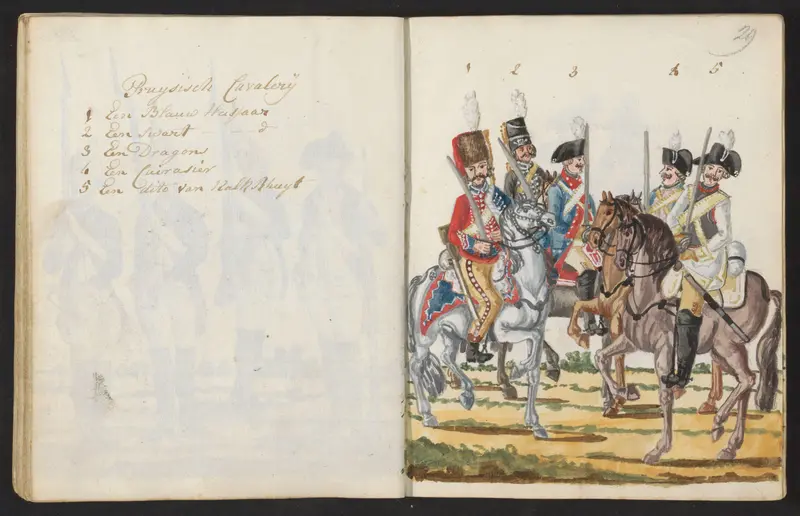 Pruysisch Cavalery
1 Een Blauw Hussaar
2 Een swart — — do
3 Een Dragon
4 Een Cuirasier
5 Een dito van
29
1 2 3 4 5